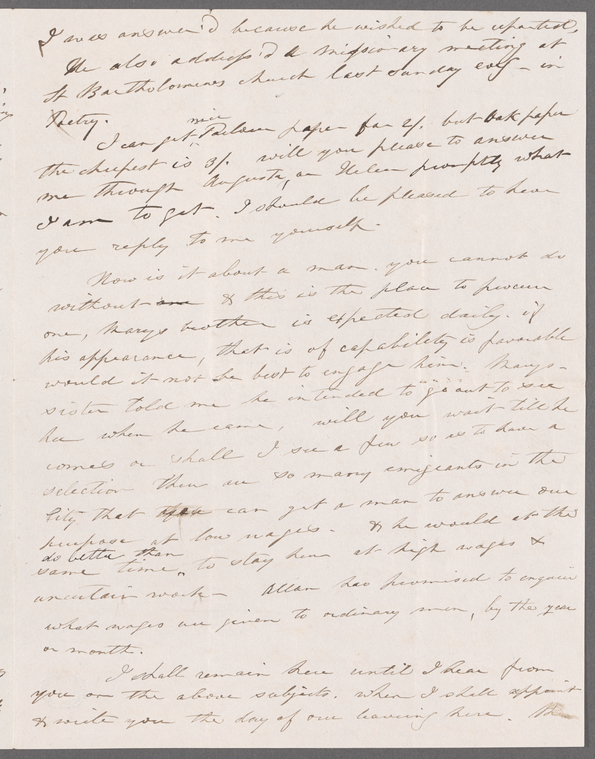 I was answer'd because he wished to be reported,
He also address'd a missionary meeting at
St Bartholomews church last Sunday eve'g - in
Poetry.
I can get nice Parlour paper for 2/. but Oak paper
the cheapest is 3/. will you please to answer
me through Augusta, or Helen promptly what
I am to get. I should be pleased to hear
you reply to me yourself.
Now is it about a man. you cannot do
without & this is the place to procure
one, Marys brother is expected daily. if
his appearance, that is of capability is favorable
would it not be best to engage him. Marys -
sister told me he intended to "go" out to see
her when he came, will you wait till he
comes or shall I see a few so as to have a
selection there are so many emigrants in the
City that you can get a man to answer our
purpose at low wages. & he would at the
do better than
same time, to stay here at high wages &
uncertain work - Allan has promised to enquire
what wages are given to ordinary men, by the year
or month.
I shall remain here until I hear from
you on the above subjects. when I shall appoint
& write you the day of our leaving here. The